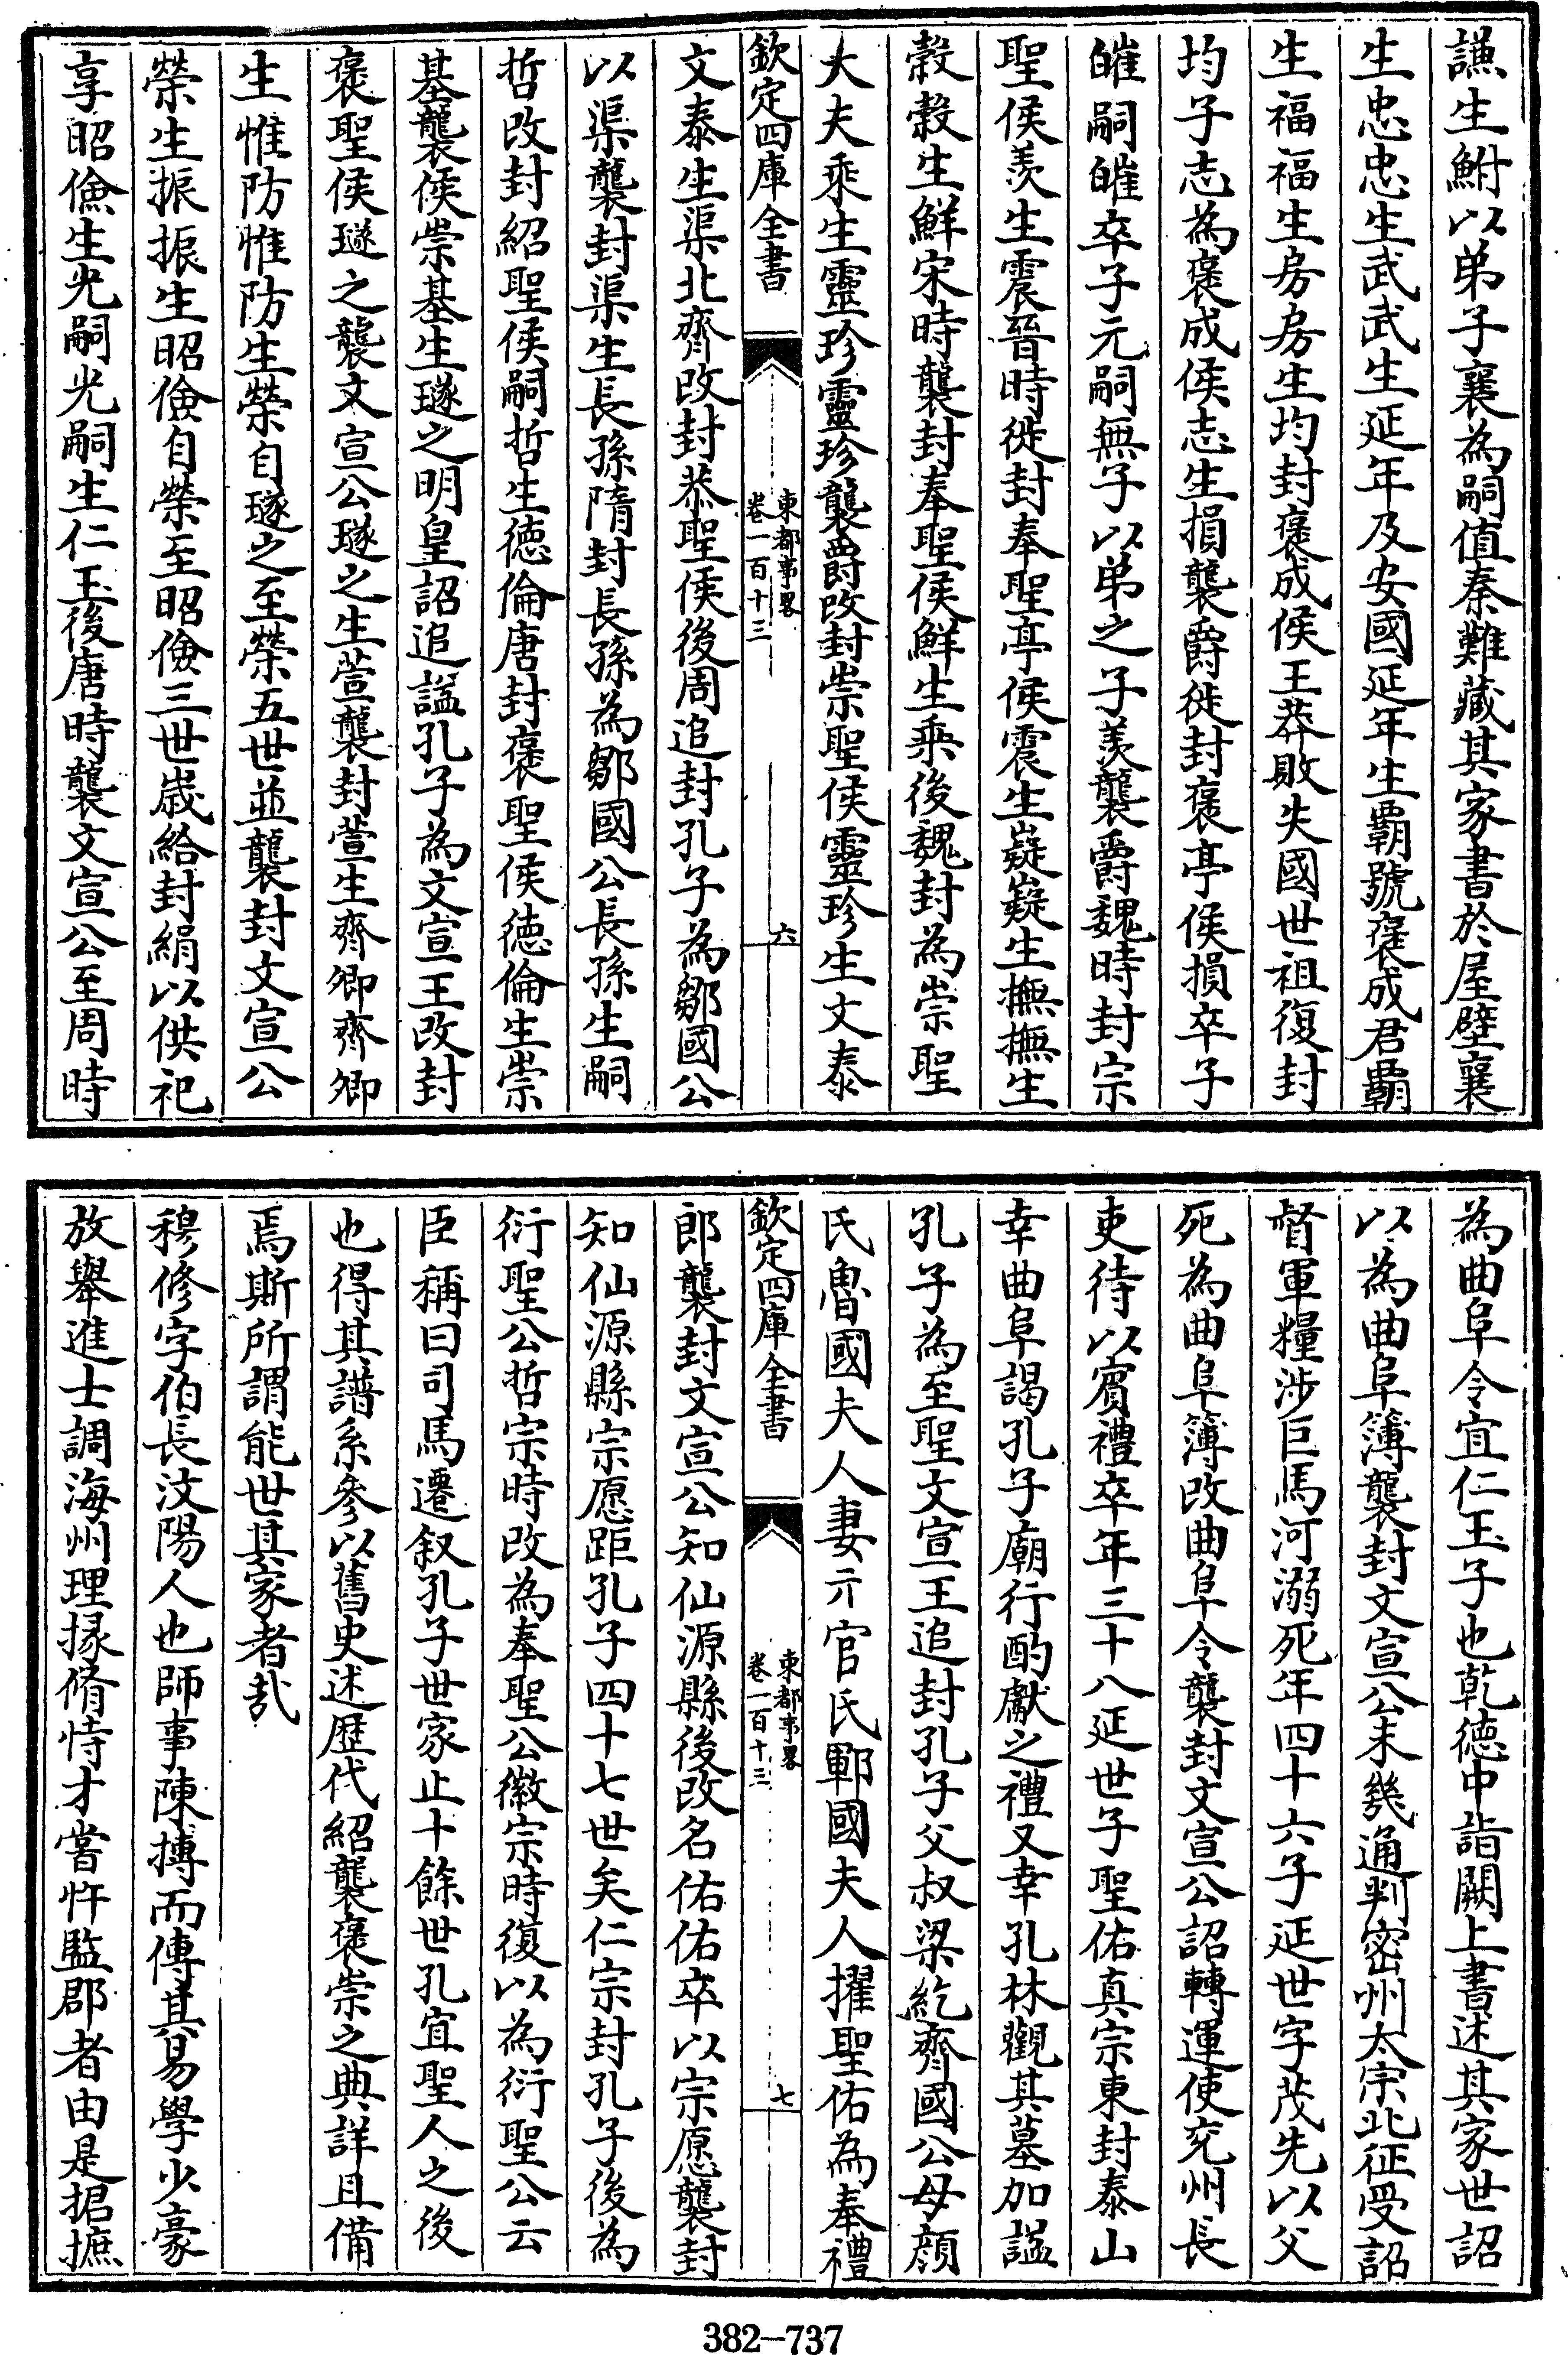 謙生鮒以弟子襄為嗣值秦難藏其家書於屋壁襄
生忠忠生武武生延年及安國延年生覇號褒成君覇
生福福生房房生均封褒成侯王莽敗失國世祖復封
均子志為褒成侯志生損襲爵徙封褒亭侯損卒子
皠嗣皠卒子元嗣無子以弟之子羨襲爵魏時封宗
聖侯羨生震晉時徙封奉聖亭侯震生嶷嶷生撫撫生
穀穀生鮮宋時襲封奉聖侯鮮生乘後魏封為崇聖
大夫乘生靈珍靈珍襲爵改封崇聖侯靈珍生文泰
欽定四庫全書
東都事畧
卷一百十三
六
文泰生渠北齊改封恭聖侯後周追封孔子為鄒國公
以渠襲封渠生長孫隋封長孫為鄒國公長孫生嗣
哲改封紹聖侯嗣哲生德倫唐封褒聖侯德倫生崇
基襲侯崇基生璲之明皇詔追諡孔子為文宣王改封
褒聖侯璲之襲文宣公璲之生萱襲封萱生齊卿齊卿
生惟防惟防生榮自璲之至榮五世並襲封文宣公
榮生振振生昭儉自榮至昭儉三世歲給封絹以供祀
享昭儉生光嗣光嗣生仁玉後唐時襲文宣公至周時
為曲阜令宜仁玉子也乾德中詣闕上書述其家世詔
以為曲阜簿襲封文宣公未幾通判密州太宗北征受詔
督軍糧涉巨馬河溺死年四十六子延世字茂先以父
死為曲阜簿改曲阜令襲封文宣公詔轉運使兖州長
吏待以賓禮卒年三十八延世子聖佑真宗東封泰山
幸曲阜謁孔子廟行酌獻之禮又幸孔林觀其墓加諡
孔子為至聖文宣王追封孔子父叔梁紇齊國公母顏
氏魯國夫人妻亓官氏鄆國夫人擢聖佑為奉禮
欽定四庫全書
東都事畧
卷一百十三
七
郎襲封文宣公知仙源縣後改名佑佑卒以宗愿襲封
知仙源縣宗愿距孔子四十七世矣仁宗封孔子後為
衍聖公哲宗時改為奉聖公徽宗時復以為衍聖公云
臣稱曰司馬遷叙孔子世家止十餘世孔宜聖人之後
也得其譜系參以舊史述歷代紹襲褒崇之典詳且備
焉斯所謂能世其家者哉
穆修字伯長汶陽人也師事陳摶而傳其易學少豪
放舉進士調海州理掾脩恃才嘗忤監郡者由是捃摭
382-737